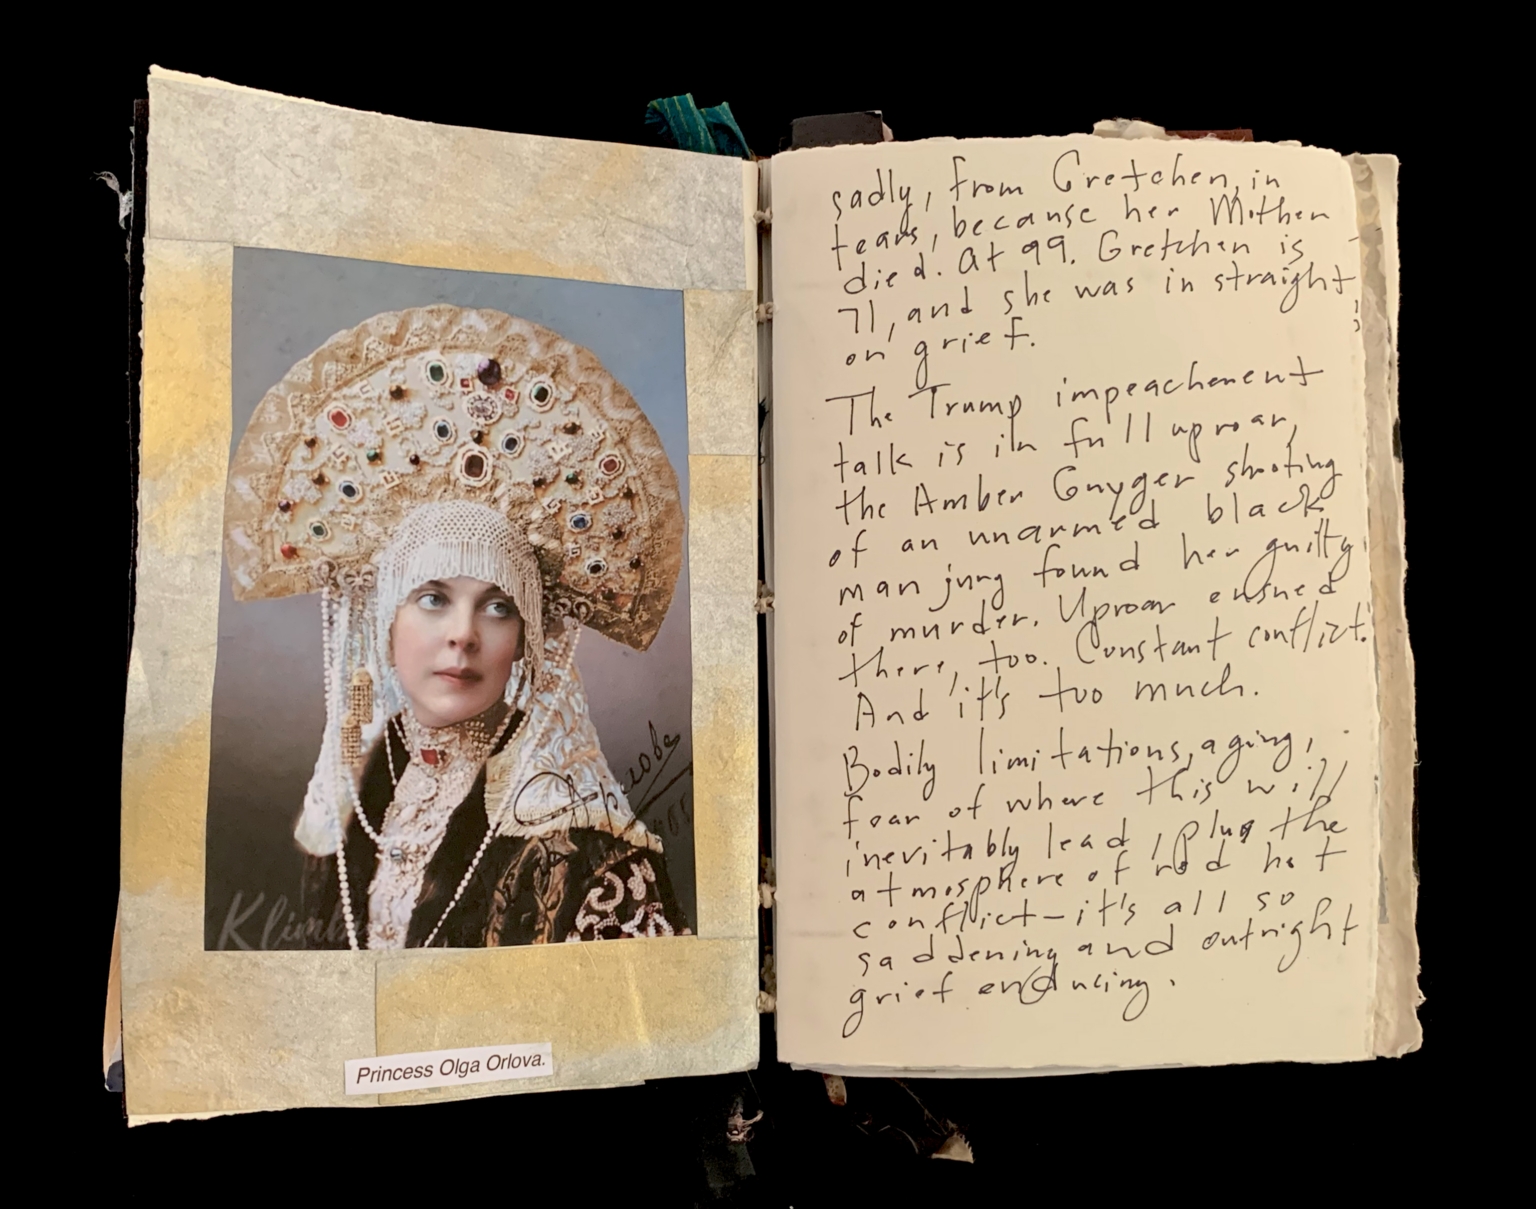 Орлова
Klimb
Princess Olga Orlova.
sadly, from Gretchen, in
tears, because her Mother
died. At 99. Gretchen is
71, and she was in straight
on grief.
The Trump impeachement
talk is in full uproar,
the Amber Guyger shooting
of an unarmed black
man jury found her guilty
of murder. Uproar ensued
there, too. Constant conflict.
And it's too much.
Bodily limitations, aging,
fear of where this will
inevitably lead, plus the
atmosphere of red hot
conflict—it's all so
saddening and outright
grief enducing.